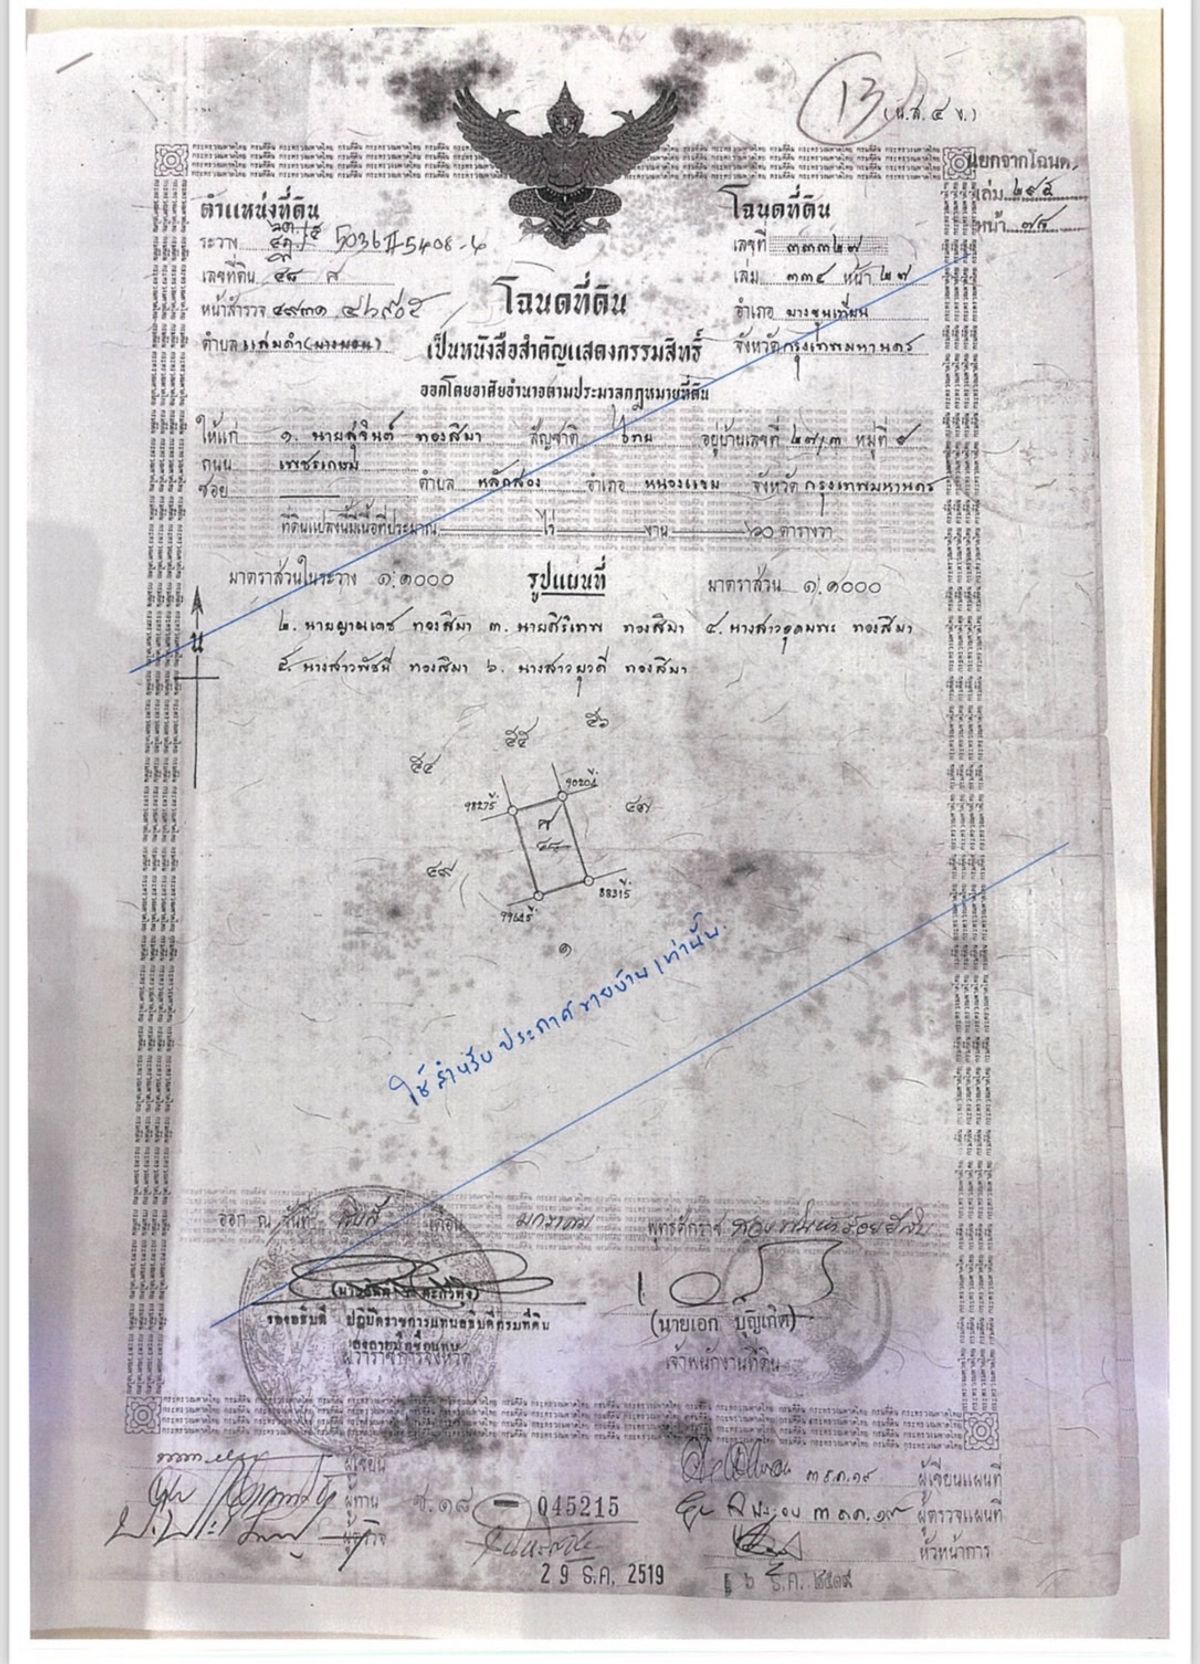 13
(น.ส.๔ ง.)
แยกจากโฉนด
เล่ม ๒๙๕
หน้า ๗๘
ตำแหน่งที่ดิน
ระวาง 5036 II 5408-4
เลขที่ดิน ๔๘
หน้าสำรวจ ๔๙๓๑
ตำบล แสมดำ(บางบอน)
โฉนดที่ดิน
เลขที่ ๓๓๓๒๗
เล่ม ๓๓๔ หน้า ๒๗
อำเภอ บางขุนเทียน
จังหวัด กรุงเทพมหานคร
โฉนดที่ดิน
เป็นหนังสือสำคัญแสดงกรรมสิทธิ์
ออกโดยอาศัยอำนาจตามประมวลกฎหมายที่ดิน
ให้แก่ ๑. นายสุจินต์ ทองสิมา สัญชาติ ไทย อยู่บ้านเลขที่ ๒๗/๓ หมู่ที่ ๙
ถนน เพชรเกษม
ซอย ตำบล หลักสอง อำเภอ หนองแขม จังหวัด กรุงเทพมหานคร
ที่ดินแปลงนี้มีเนื้อที่ประมาณ ไร่ งาน ๖๐ ตารางวา
มาตราส่วนในระวาง ๑:๑๐๐๐ รูปแผนที่ มาตราส่วน ๑:๑๐๐๐
๒. นายญาณเดช ทองสิมา ๓. นายสิริเทพ ทองสิมา ๔. นางสาวอุดมพร ทองสิมา
๕. นางสาวพัชนี ทองสิมา ๖. นางสาวยุวดี ทองสิมา
น
๕๖
๕๕
๕๔
๔๗
๔๘
๔๙
๑
ใช้สำหรับ ประกาศ ขายบ้าน เท่านั้น
ออก ณ วันที่ เดือน มกราคม พุทธศักราช สองพันห้าร้อยยี่สิบ
รองอธิบดี ปฏิบัติราชการแทนอธิบดีกรมที่ดิน
ผู้ว่าราชการจังหวัด
(นายเอก บุญเกิด)
เจ้าพนักงานที่ดิน
ผู้เขียน
ผู้ทาน
ผู้ตรวจ
ช.๑๘ 045215
29 ธ.ค. 2519
๓ ธ.ค. ๑๙ ผู้เขียนแผนที่
๓ ธ.ค. ๑๙ ผู้ตรวจแผนที่
หัวหน้าการ
๖ ธ.ค. ๒๕๑๙